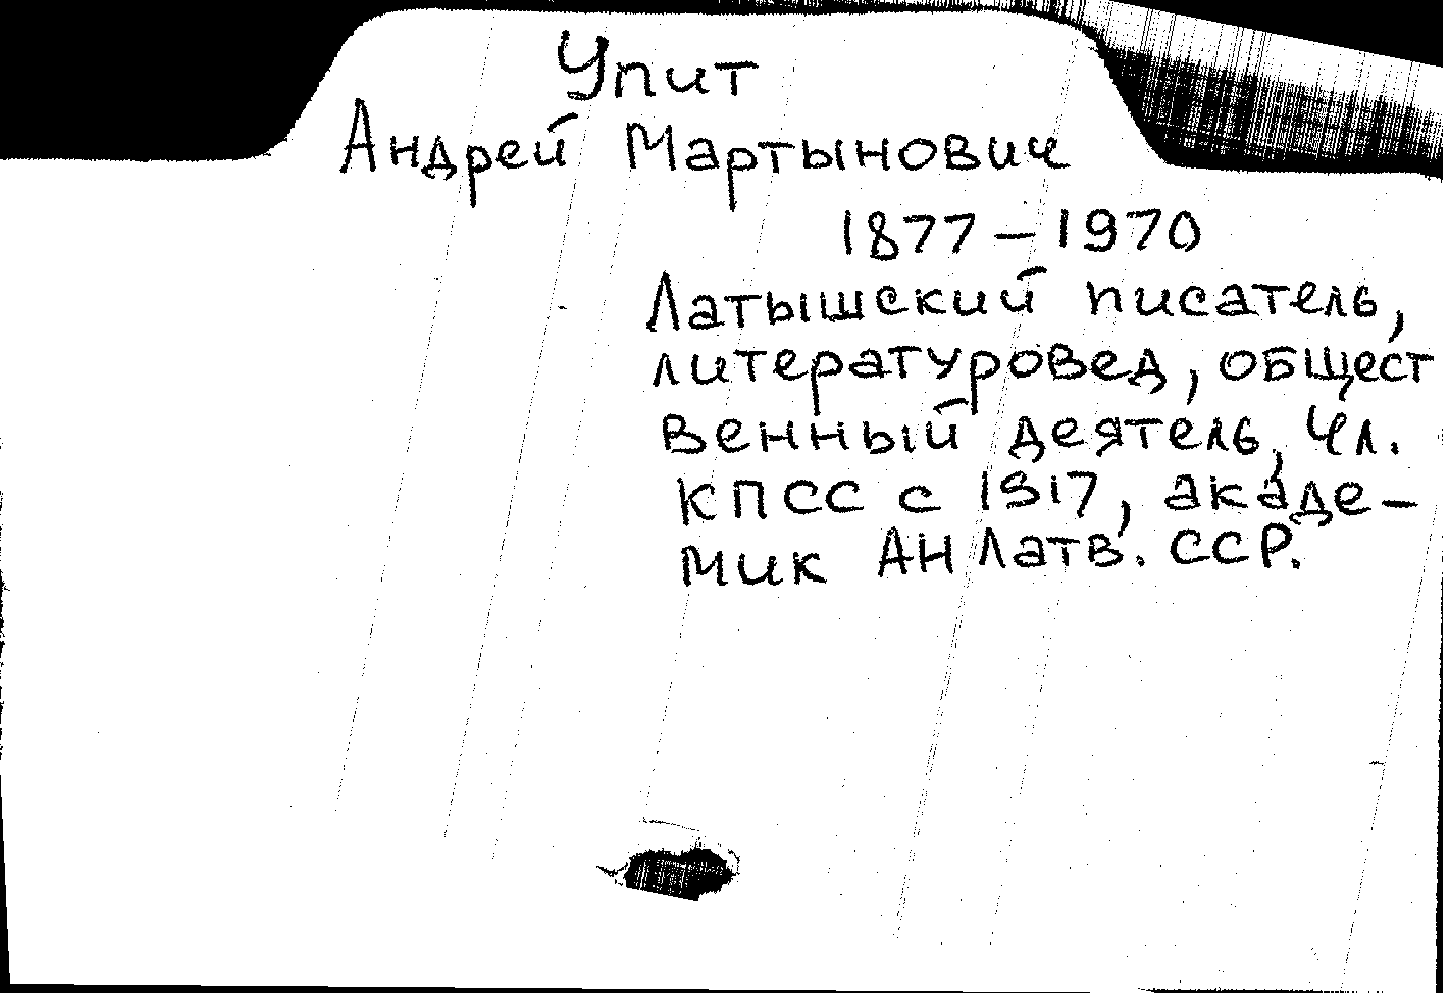 Упит
Андрей Мартынович
1877 – 1970
Латышский писатель,
литературовед, общест
венный деятель, Чл.
КПСС с 1917, акаде–
мик АН Латв. ССР.